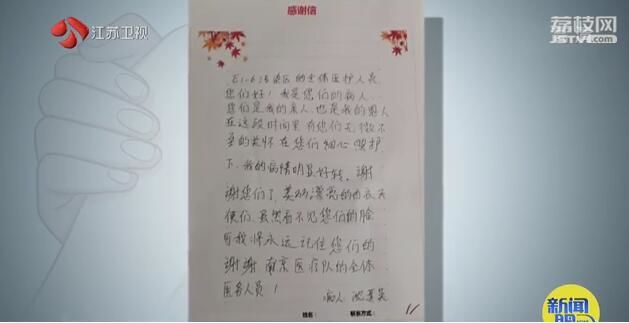 江苏卫视
荔枝网
JSTV.COM
感谢信
E1-6 病区的全体医护人员
您们好！我是您们的病人
您们是我的亲人，也是我的恩人
在这段时间里有您们无微不
至的关怀在您们细心照护
下，我的病情明显好转。谢
谢您们了，美丽漂亮的白衣天
使们，虽然看不见您们的脸
可我将永远记住您们的
谢谢南京医疗队的全体
医务人员！
病人
姓名：
联系方式：
新闻
眼